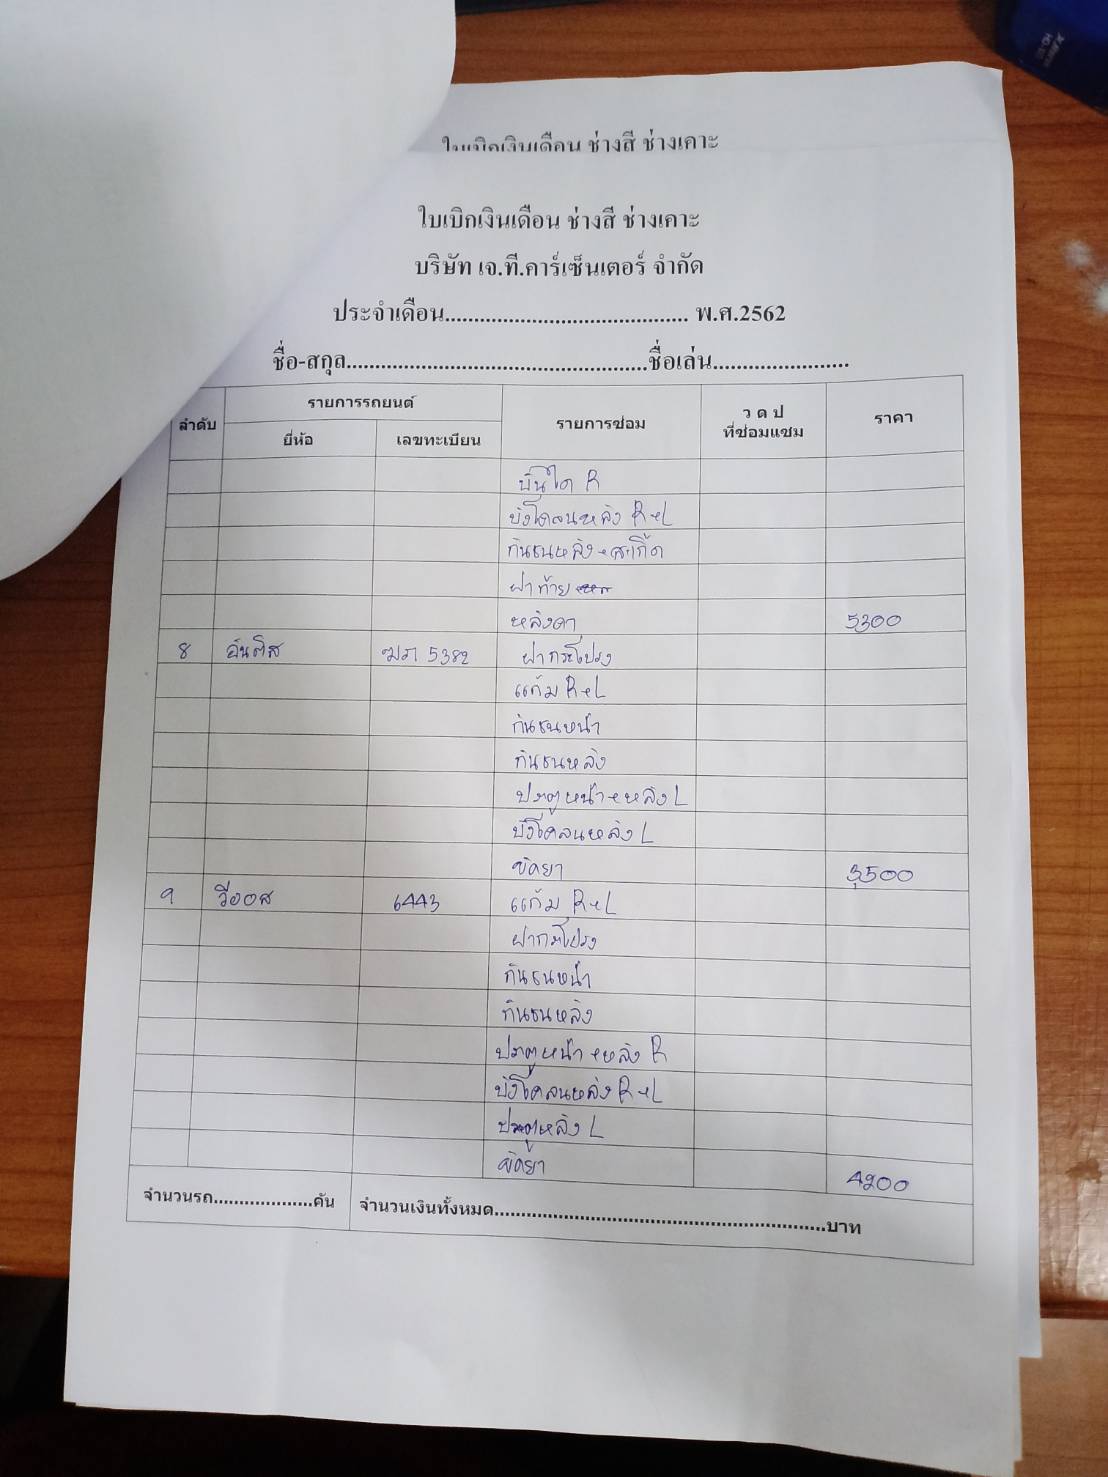 ใบเบิกเงินเดือน ช่างสี ช่างเคาะ
ใบเบิกเงินเดือน ช่างสี ช่างเคาะ
บริษัท เจ.ที.คาร์เซ็นเตอร์ จำกัด
ประจำเดือน.......................................... พ.ศ.2562
ชื่อ-สกุล....................................................ชื่อเล่น.......................
ลำดับ รายการรถยนต์ รายการซ่อม ว ด ป ที่ซ่อมแซม ราคา
ยี่ห้อ เลขทะเบียน
บันได R
บังโคลนหลัง R+L
กันชนหลัง+สเกิ๊ต
ฝาท้าย
หลังคา 5300
8 5382 ฝากระโปรง
แก้ม R+L
กันชนหน้า
กันชนหลัง
ประตูหน้า+หลัง L
บังโคลนหลัง L
ขัดยา 3500
9 วีออส 6443 แก้ม R+L
ฝากระโปรง
กันชนหน้า
กันชนหลัง
ประตูหน้า+หลัง R
บังโคลนหลัง R+L
ประตูหลัง L
ขัดยา 4200
จำนวนรถ...................คัน จำนวนเงินทั้งหมด................................................................บาท